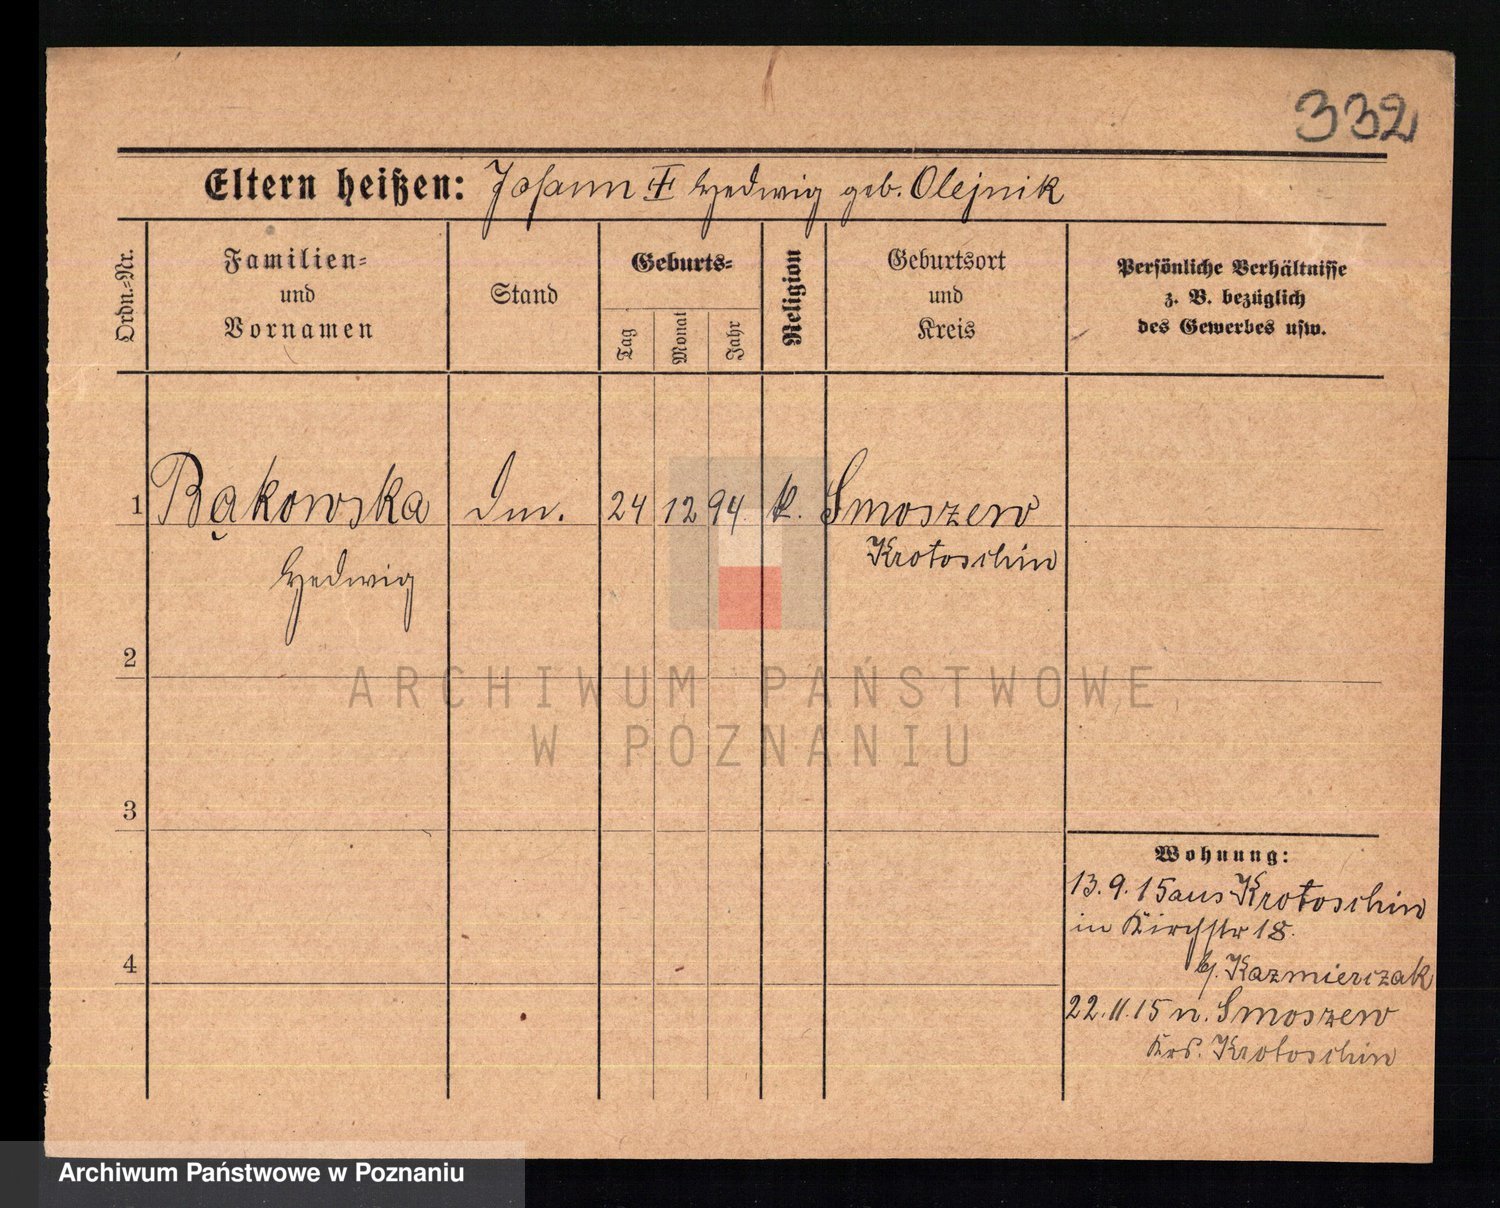 332
Eltern heißen: Johann ‡ Hedwig geb. Olejnik
Ordn.-Nr.
Familien-
und
Vornamen
Stand
Geburts-
Tag
Monat
Jahr
Religion
Geburtsort
und
Kreis
Persönliche Verhältnisse
z. B. bezüglich
des Gewerbes usw.
1 Bąkowska Dm. 24 12 94. k. Smoszew
Hedwig Krotoschin
2
ARCHIWUM PAŃSTWOWE
W POZNANIU
3
Wohnung:
13.9.15 aus Krotoschin
in Kirchstr 18.
b/. Kazmierczak
4
22.11.15 n. Smoszew
Krs. Krotoschin
Archiwum Państwowe w Poznaniu